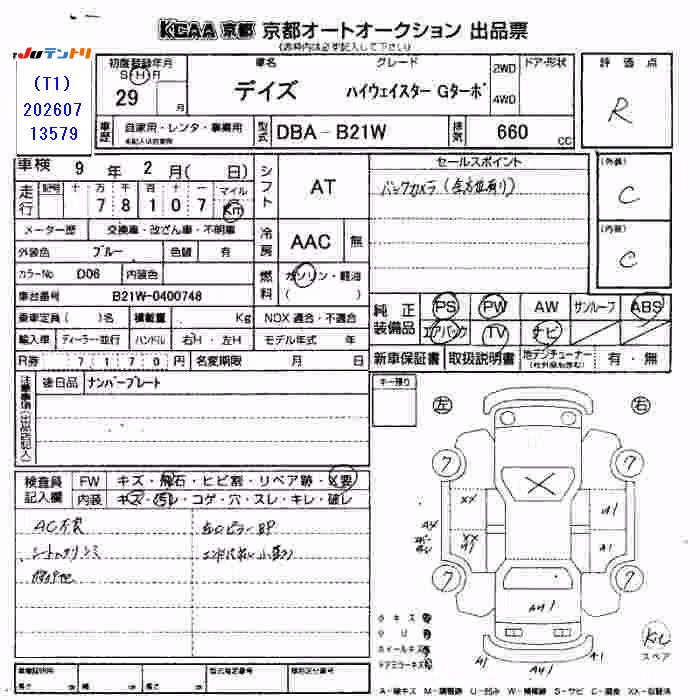 KCAA 京都 京都オートオークション 出品票
(太枠内は必ず記入して下さい)
JUテントリ
(T1)
202607
13579
初度登録年月
S・H・R
29 月
車名
デイズ
グレード
ハイウェイスター Gターボ
2WD
4WD
ドア・形状
評価点
R
車歴
自家用・レンタ・事業用
型式
DBA-B21W
排気
660 CC
車検 9年 2月( 日)
シフト
AT
セールスポイント
バックカメラ(全方位有り)
(外装)
C
(内装)
C
走行
十 万 千 百 十 一
7 8 1 0 7
マイル
Km
メーター歴 交換車・改ざん車・不明車
冷房
AAC 無
外装色 ブルー 色替 有
カラーNo D06 内装色
燃料
ガソリン・軽油
( )
車台番号 B21W-0400748
純正装備品
PS PW AW サンルーフ ABS
エアバック TV ナビ
乗車定員( )名 積載量 Kg NOX適合・不適合
輸入車 ディーラー・並行 ハンドル 右H・左H モデル年式 年
新車保証書 取扱説明書 地デジチューナー 有・無
R券 7170円 名変期限 月 日
注意事項(出品店記入)
後日品 ナンバープレート
キー預り
左 右
検査員記入欄
FW キズ・飛石・ヒビ割・リペア跡・X要
内装 キズ・汚レ・コゲ・穴・スレ・キレ・破レ
AC不良
シート
7 7
XX A1
XX A1
7 7
A41
A1 A1
小キズ
ホイールキズ
ドアミラーキズ
スペア
車検証明
長さ cm
幅 cm
高さ cm
型式指定番号
類別区分番号
A-線キズ U-凹み S-サビ C-腐食